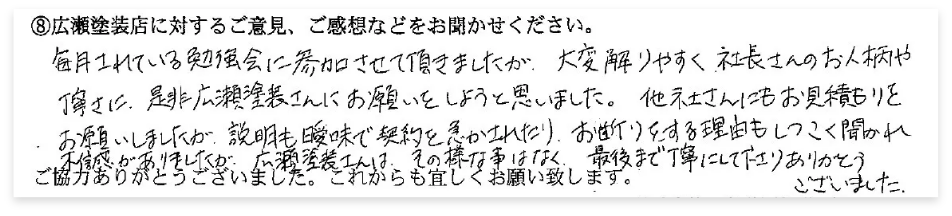 ⑧広瀬塗装店に対するご意見、ご感想などをお聞かせください。
毎月されている勉強会に参加させて頂きましたが、大変解りやすく、社長さんのお人柄や
丁寧さに、是非広瀬塗装さんにお願いをしようと思いました。他社さんにもお見積もりを
お願いしましたが、説明も曖昧で契約を急かされたり、お断りをする理由もしつこく聞かれ
不信感がありましたが、広瀬塗装さんは、その様な事はなく、最後まで丁寧にして下さりありがとう
ございました。
ご協力ありがとうございました。これからも宜しくお願い致します。